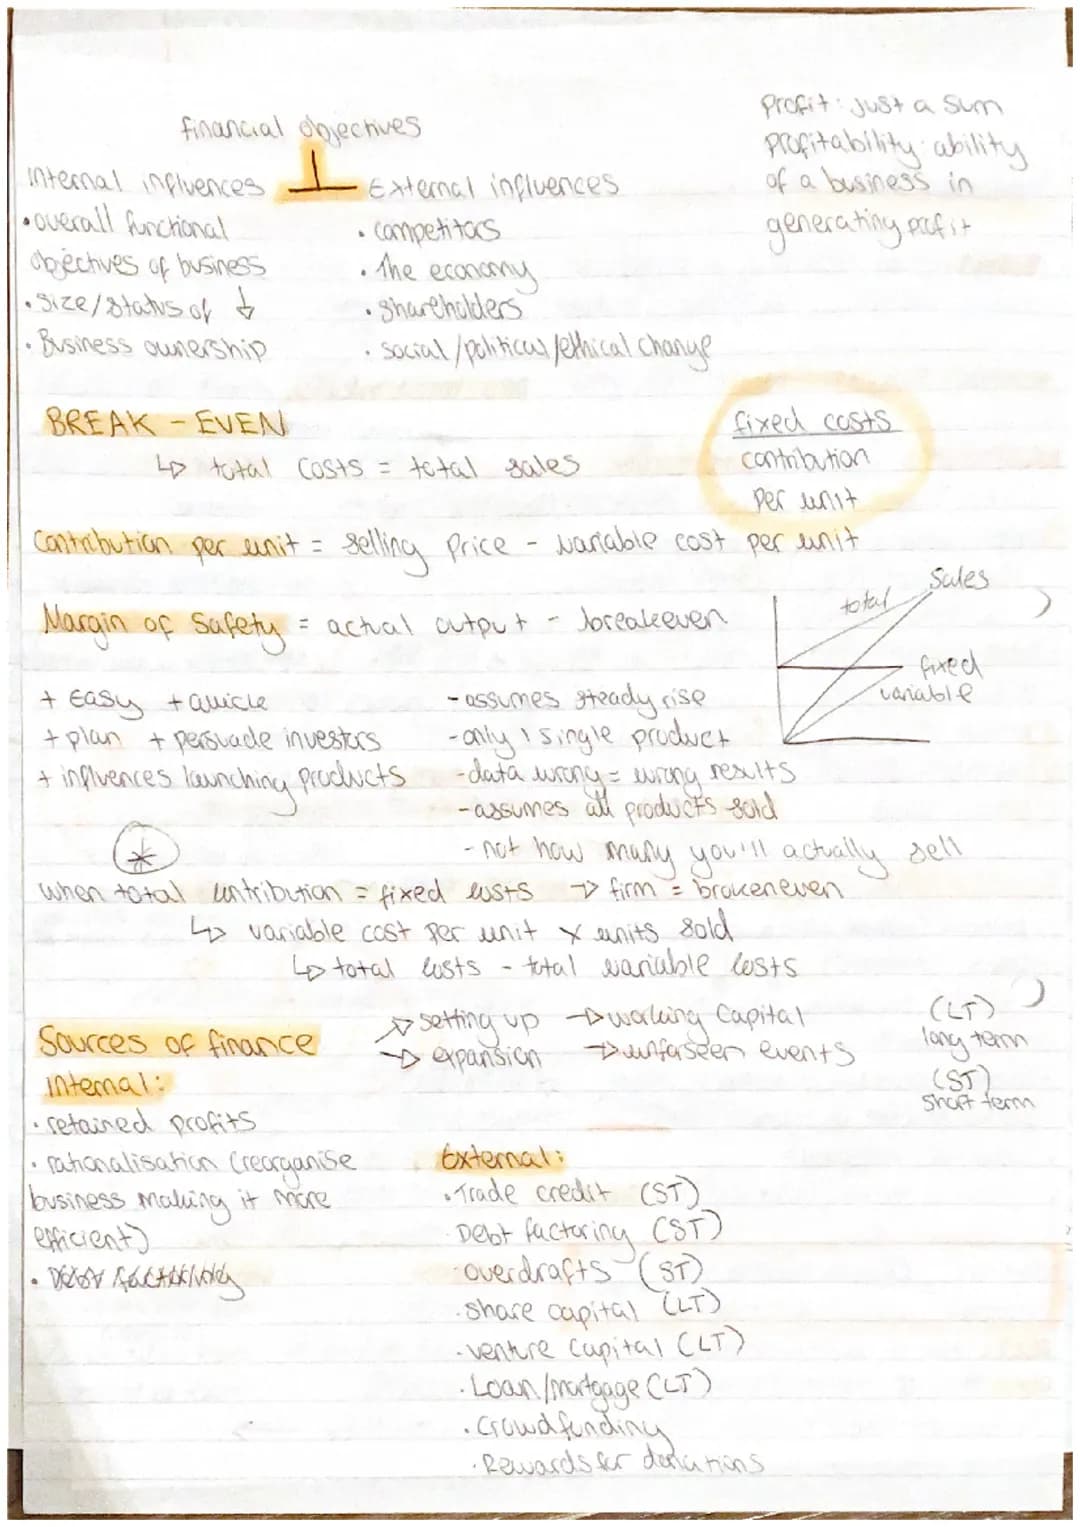 financial objectives
Profit: Just a sum
Profitability: ability
of a business in
generating profit
Internal influences
• overall functional
objectives of business
• size/status of ↓
• Business ownership
External influences
• competitors
• The economy
• shareholders
• social/political/ethical change
BREAK - EVEN
↳ total costs = total sales
fixed costs
contribution
per unit
Contribution per unit = selling price - variable cost per unit
Margin of Safety = actual output - breakeven
Sales
total
fixed
variable
+ Easy + quick
+ plan + persuade investors
+ influences launching products
- assumes steady rise
- only 1 single product
- data wrong = wrong results
- assumes all products sold
- not how many you'll actually sell
*
when total contribution = fixed costs → firm = brokeneven
↳ variable cost per unit x units sold
↳ total costs - total variable costs
Sources of finance
→ setting up → working capital
→ expansion → unforseen events
(LT)
long term
(ST)
short term
Internal:
• retained profits
• rationalisation (reorganise
business making it more
efficient)
• Debt factoring
External:
• Trade credit (ST)
· Debt factoring (ST)
· overdrafts (ST)
· share capital (LT)
· venture capital (LT)
· Loan/mortgage (LT)
· Crowdfunding
· Rewards for donations